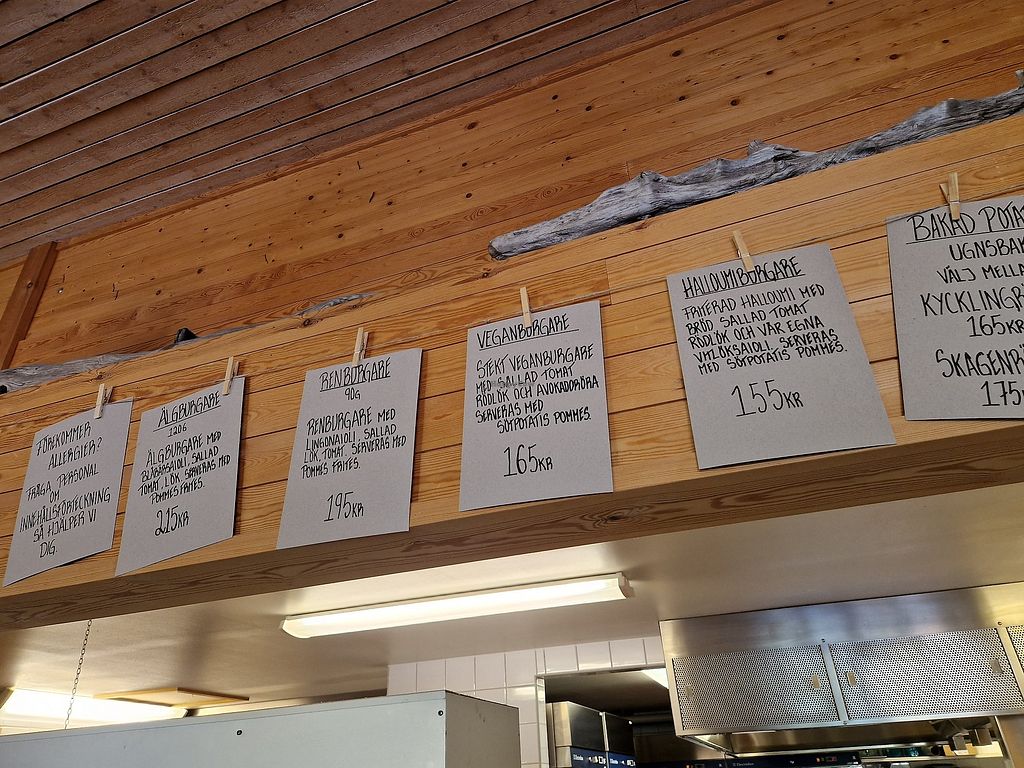 FÖREKOMMER
ALLERGIER?
FRÅGA PERSONAL
OM
INNEHÅLLSFÖRTECKNING
SÅ HJÄLPER VI
DIG.
ÄLGBURGARE
120G
ÄLGBURGARE MED
BLÅBÄRSAIOLI, SALLAD
TOMAT, LÖK. SERVERAS MED
POMMES FRITES.
215KR
RENBURGARE
90G
RENBURGARE MED
LINGONAIOLI, SALLAD
LÖK, TOMAT. SERVERAS MED
POMMES FRITES.
195KR
VEGANBURGARE
STEKT VEGANBURGARE
MED SALLAD TOMAT
RÖDLÖK OCH AVOKADORÖRA
SERVERAS MED
SÖTPOTATIS POMMES.
165KR
HALLOUMIBURGARE
FRITERAD HALLOUMI MED
BRÖD, SALLAD TOMAT
RÖDLÖK OCH VÅR EGNA
VITLÖKSAIOLI. SERVERAS
MED SÖTPOTATIS POMMES.
155KR
BAKAD POTA
UGNSBAK
VÄLJ MELLA
KYCKLING
165KR
SKAGENR
175